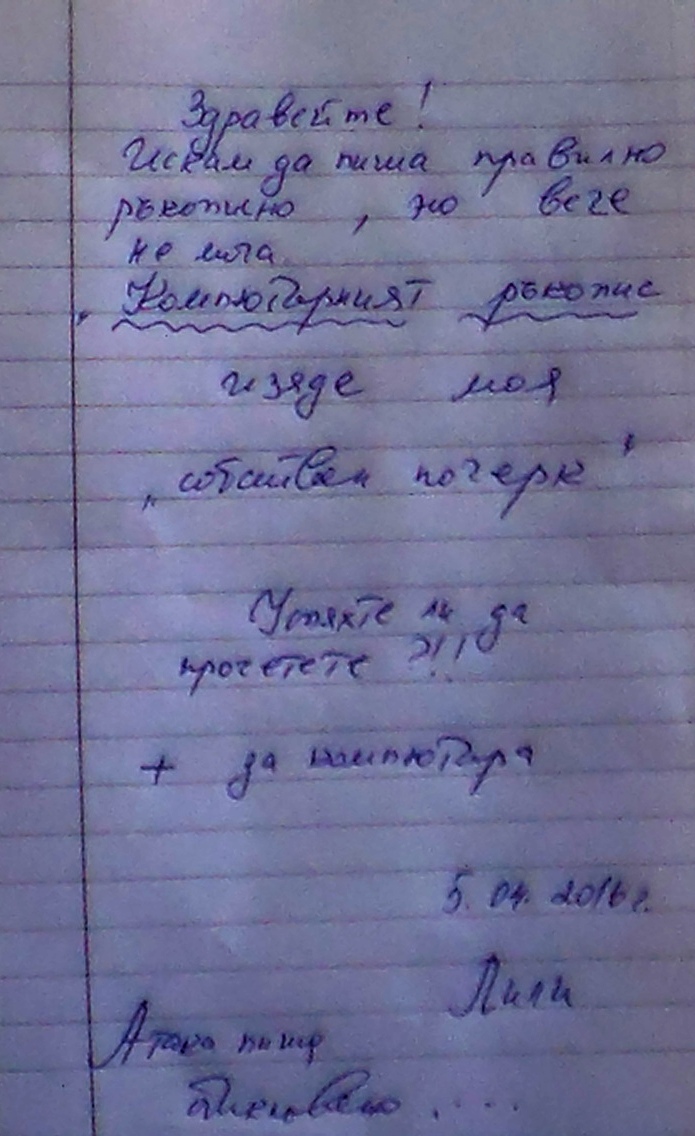 Здравейте!
Искам да пиша правилно
ръкописно, но вече
не мога.
"Компютърният ръкопис
изяде моя
"собствен почерк"
Успяхте ли да
прочетете?!!
+ за компютъра
5.04.2016г.
Лили
А така пиша
обикновено....